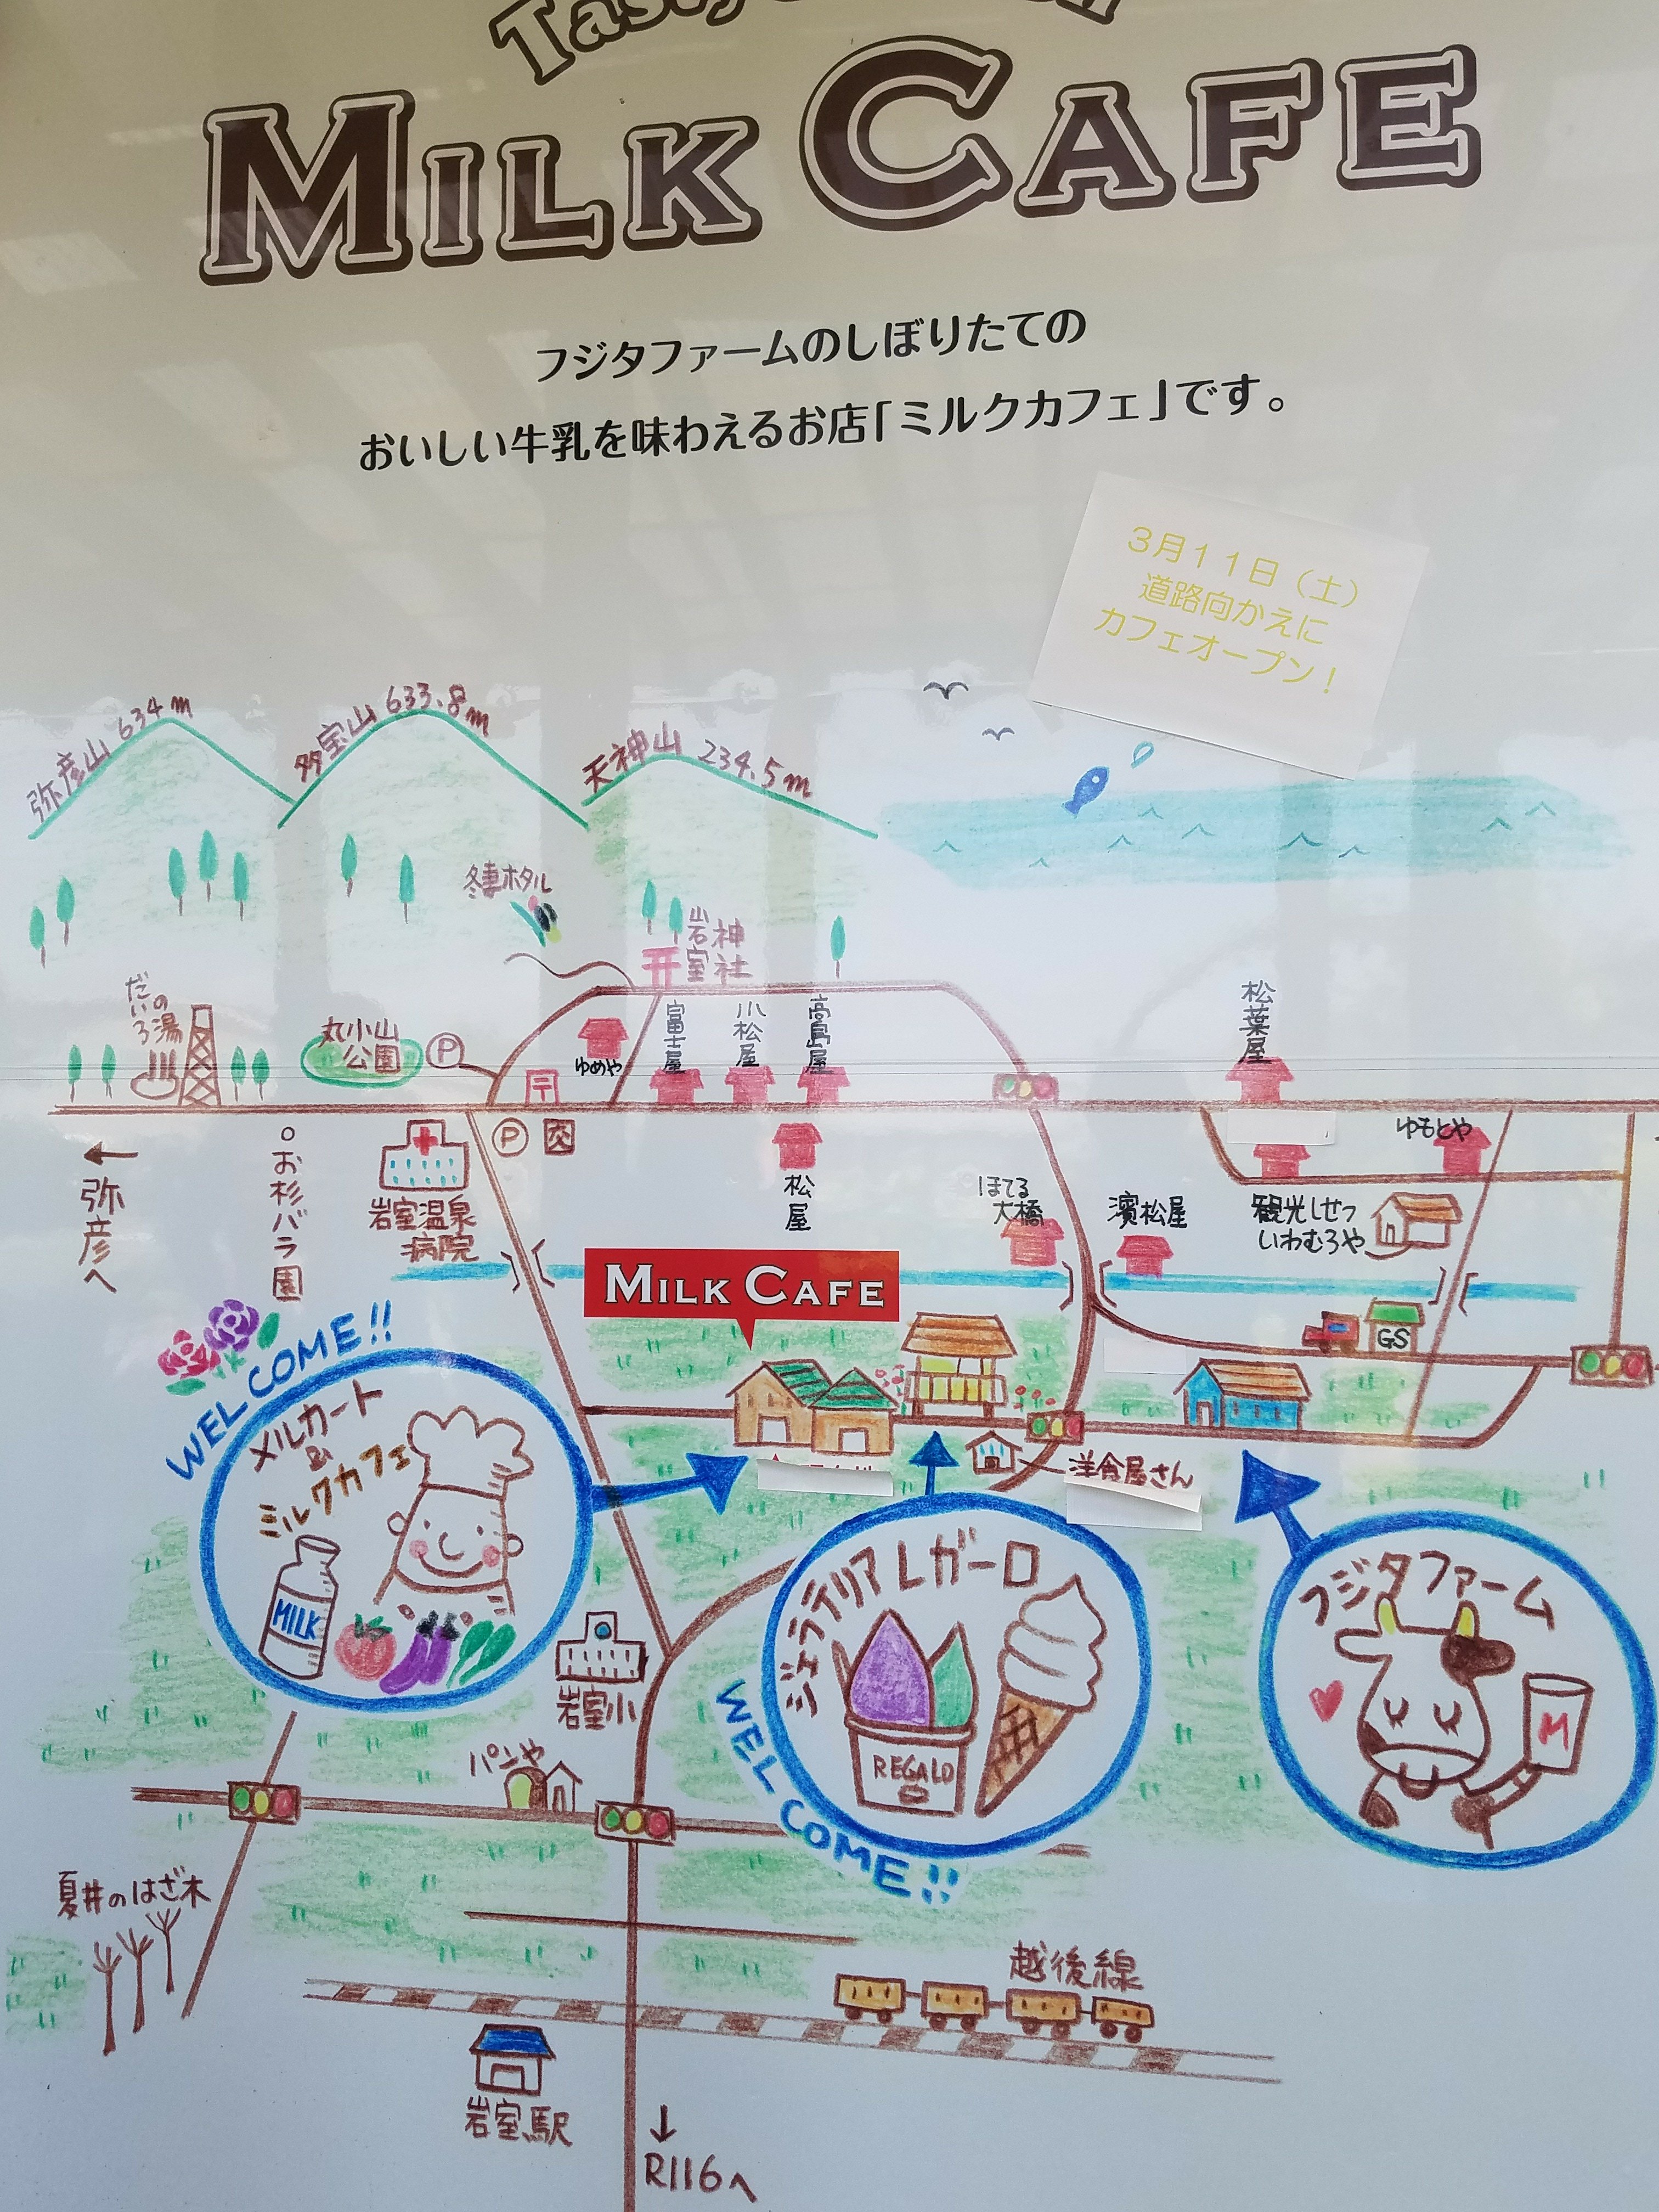 MILK CAFE
フジタファームのしぼりたての
おいしい牛乳を味わえるお店「ミルクカフェ」です。
3月11日（土）
道路向かえに
カフェオープン！
弥彦山 634m
多宝山 633.8m
天神山 234.5m
冬妻ホタル
岩室神社
だいろの湯
丸小山
公園
P
ゆめや
〒
富士屋
小松屋
高島屋
松葉屋
P
←
弥彦へ
お杉バラ園
岩室温泉
病院
松屋
ほてる
大橋
濱松屋
ゆもとや
観光しせつ
いわむろや
MILK CAFE
GS
WELCOME!!
メルカート
&
ミルクカフェ
MILK
洋食屋さん
ジェラテリア レガーロ
REGALO
WELCOME!!
フジタファーム
M
岩室小
パンや
夏井のはざ木
越後線
岩室駅
↓
R116へ